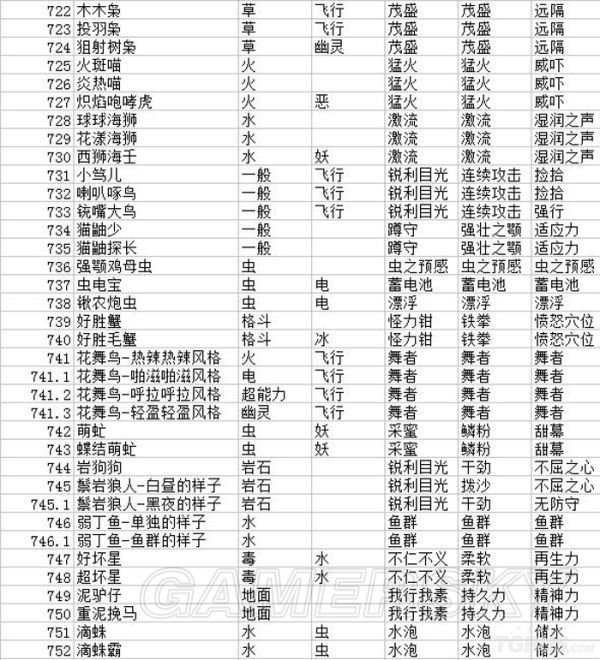 722 木木枭 草 飞行 茂盛 茂盛 远隔
723 投羽枭 草 飞行 茂盛 茂盛 远隔
724 狙射树枭 草 幽灵 茂盛 茂盛 远隔
725 火斑喵 火 猛火 猛火 威吓
726 炎热喵 火 猛火 猛火 威吓
727 炽焰咆哮虎 火 恶 猛火 猛火 威吓
728 球球海狮 水 激流 激流 湿润之声
729 花漾海狮 水 激流 激流 湿润之声
730 西狮海壬 水 妖 激流 激流 湿润之声
731 小笃儿 一般 飞行 锐利目光 连续攻击 捡拾
732 喇叭啄鸟 一般 飞行 锐利目光 连续攻击 捡拾
733 铳嘴大鸟 一般 飞行 锐利目光 连续攻击 强行
734 猫鼬少 一般 蹲守 强壮之颚 适应力
735 猫鼬探长 一般 蹲守 强壮之颚 适应力
736 强颚鸡母虫 虫 虫之预感 虫之预感 虫之预感
737 虫电宝 虫 电 蓄电池 蓄电池 蓄电池
738 锹农炮虫 虫 电 漂浮 漂浮 漂浮
739 好胜蟹 格斗 怪力钳 铁拳 愤怒穴位
740 好胜毛蟹 格斗 冰 怪力钳 铁拳 愤怒穴位
741 花舞鸟-热辣热辣风格 火 飞行 舞者 舞者 舞者
741.1 花舞鸟-啪滋啪滋风格 电 飞行 舞者 舞者 舞者
741.2 花舞鸟-呼拉呼拉风格 超能力 飞行 舞者 舞者 舞者
741.3 花舞鸟-轻盈轻盈风格 幽灵 飞行 舞者 舞者 舞者
742 萌虻 虫 妖 采蜜 鳞粉 甜幕
743 蝶结萌虻 虫 妖 采蜜 鳞粉 甜幕
744 岩狗狗 岩石 锐利目光 干劲 不屈之心
745 鬃岩狼人-白昼的样子 岩石 锐利目光 拨沙 不屈之心
745.1 鬃岩狼人-黑夜的样子 岩石 锐利目光 干劲 无防守
746 弱丁鱼-单独的样子 水 鱼群 鱼群 鱼群
746.1 弱丁鱼-鱼群的样子 水 鱼群 鱼群 鱼群
747 好坏星 毒 水 不仁不义 柔软 再生力
748 超坏星 毒 水 不仁不义 柔软 再生力
749 泥驴仔 地面 我行我素 持久力 精神力
750 重泥挽马 地面 我行我素 持久力 精神力
751 滴蛛 水 虫 水泡 水泡 储水
752 滴蛛霸 水 虫 水泡 水泡 储水